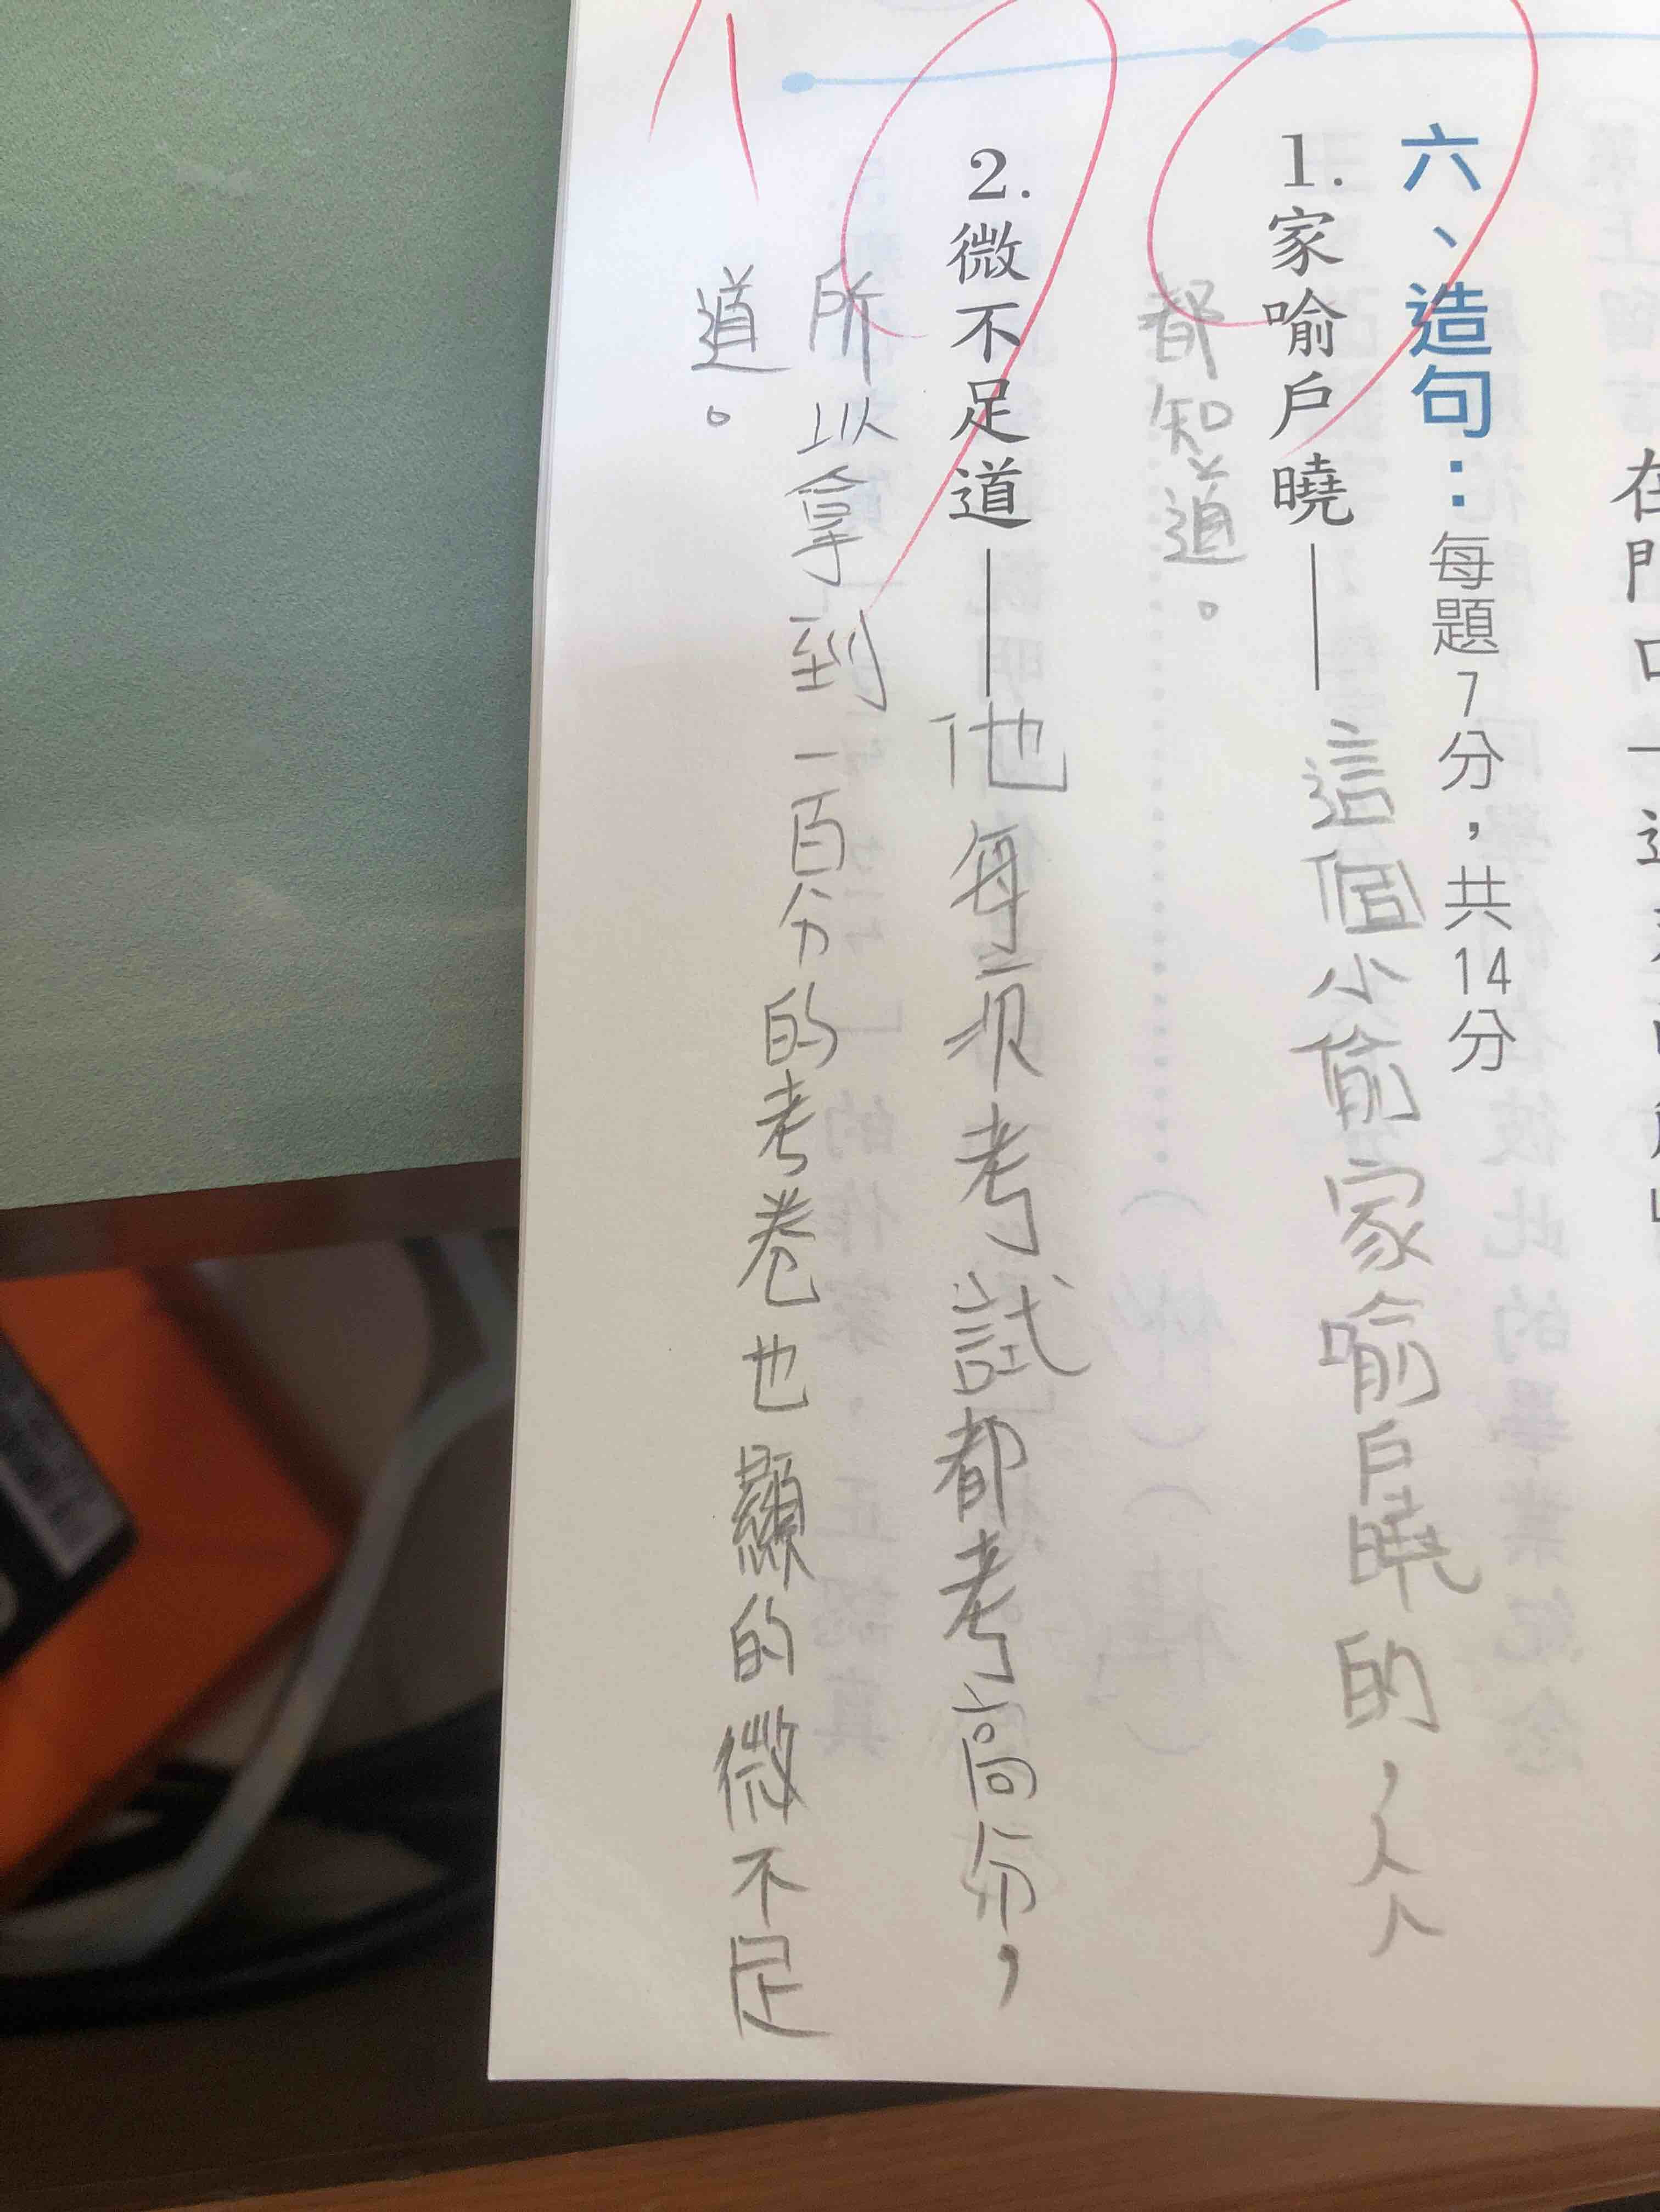 六、造句：每題7分，共14分
1.家喻戶曉——這個小偷家喻戶曉的，人人
都知道。
2.微不足道——他每次考試都考高分，
所以拿到一百分的考卷也顯的微不足
道。